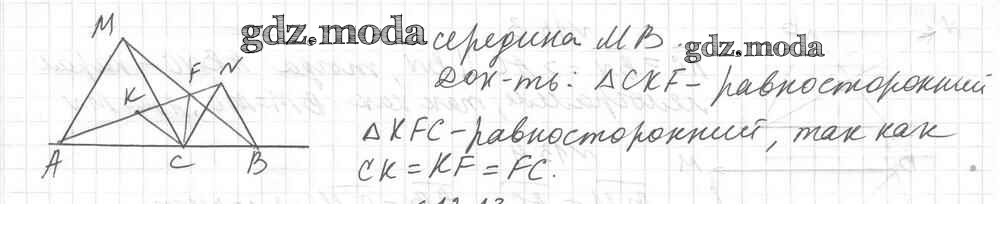 gdz.moda
середина MB.
gdz.moda
Док-ть: △CKF - равносторонний
△KFC - равносторонний, так как
CK = KF = FC.
M
F
N
K
A
C
B